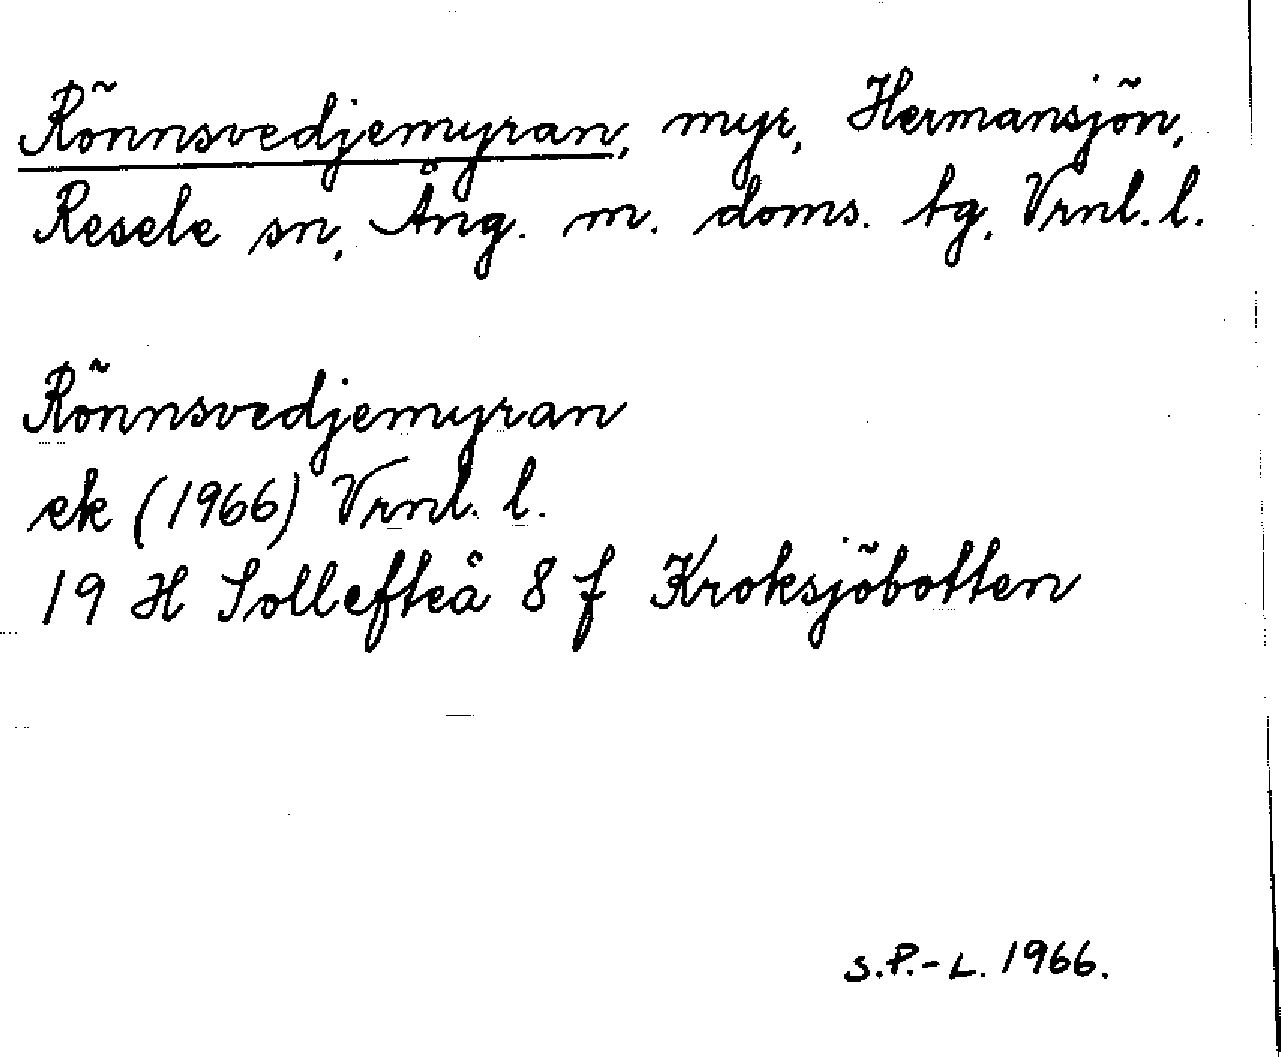 Rönnsvedjemyran, myr, Hermansjön,
Resele sn, Ång. m. doms. tg, Vrnl. l.
Rönnsvedjemyran
ek (1966) Vrnl. l.
19 H Sollefteå 8 f Kroksjöbotten
S.P.-L. 1966.